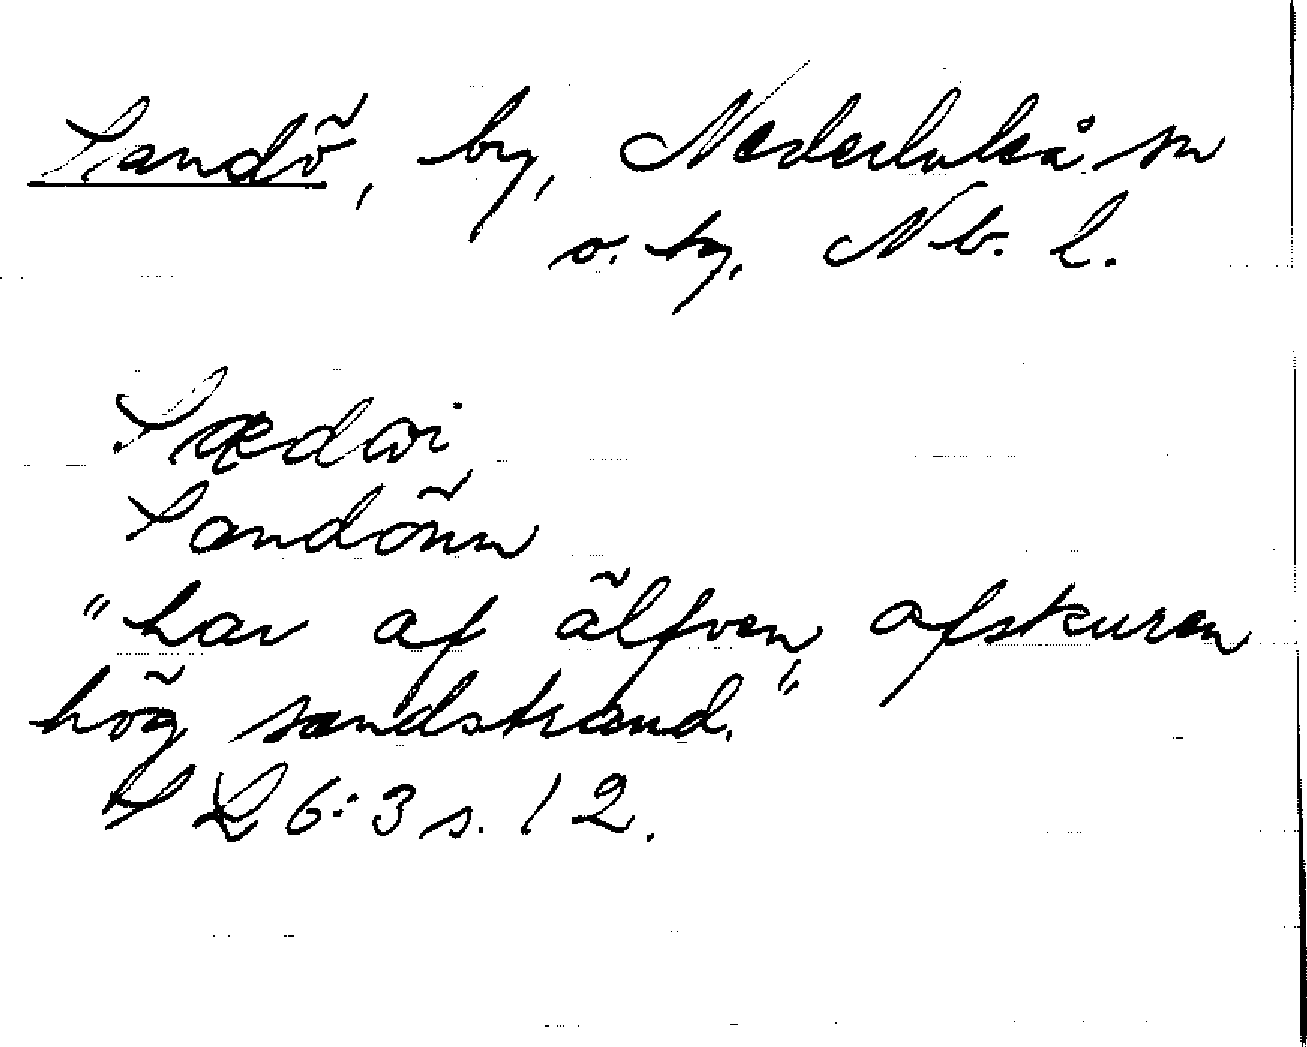 Sandö, by, Nederluleå sn
o. tg, Nb. l.
Sandön
"har af älfven afskuren
hög sandstrand."
SL 6:3 s. 12.